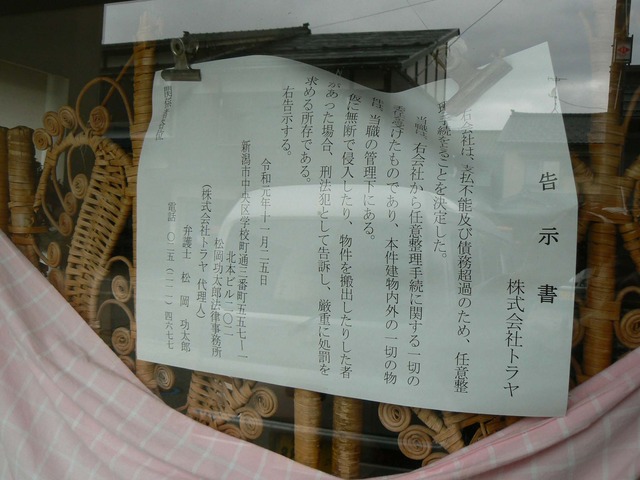 告示書
株式会社トラヤ
右会社は、支払不能及び債務超過のため、任意整
理手続をとることを決定した。
当職は、右会社から任意整理手続に関する一切の
委任を受けたものであり、本件建物内外の一切の物
は、当職の管理下にある。
仮に無断で侵入したり、物件を搬出したりした者
があった場合、刑法犯として告訴し、厳重に処罰を
求める所存である。
右告示する。
令和元年十一月二五日
新潟市中央区学校町通三番町五五七ー一
北本ビル一〇二
松岡功太郎法律事務所
(株式会社トラヤ 代理人)
弁護士 松岡 功太郎
電話 〇二五(二二二)四六七七